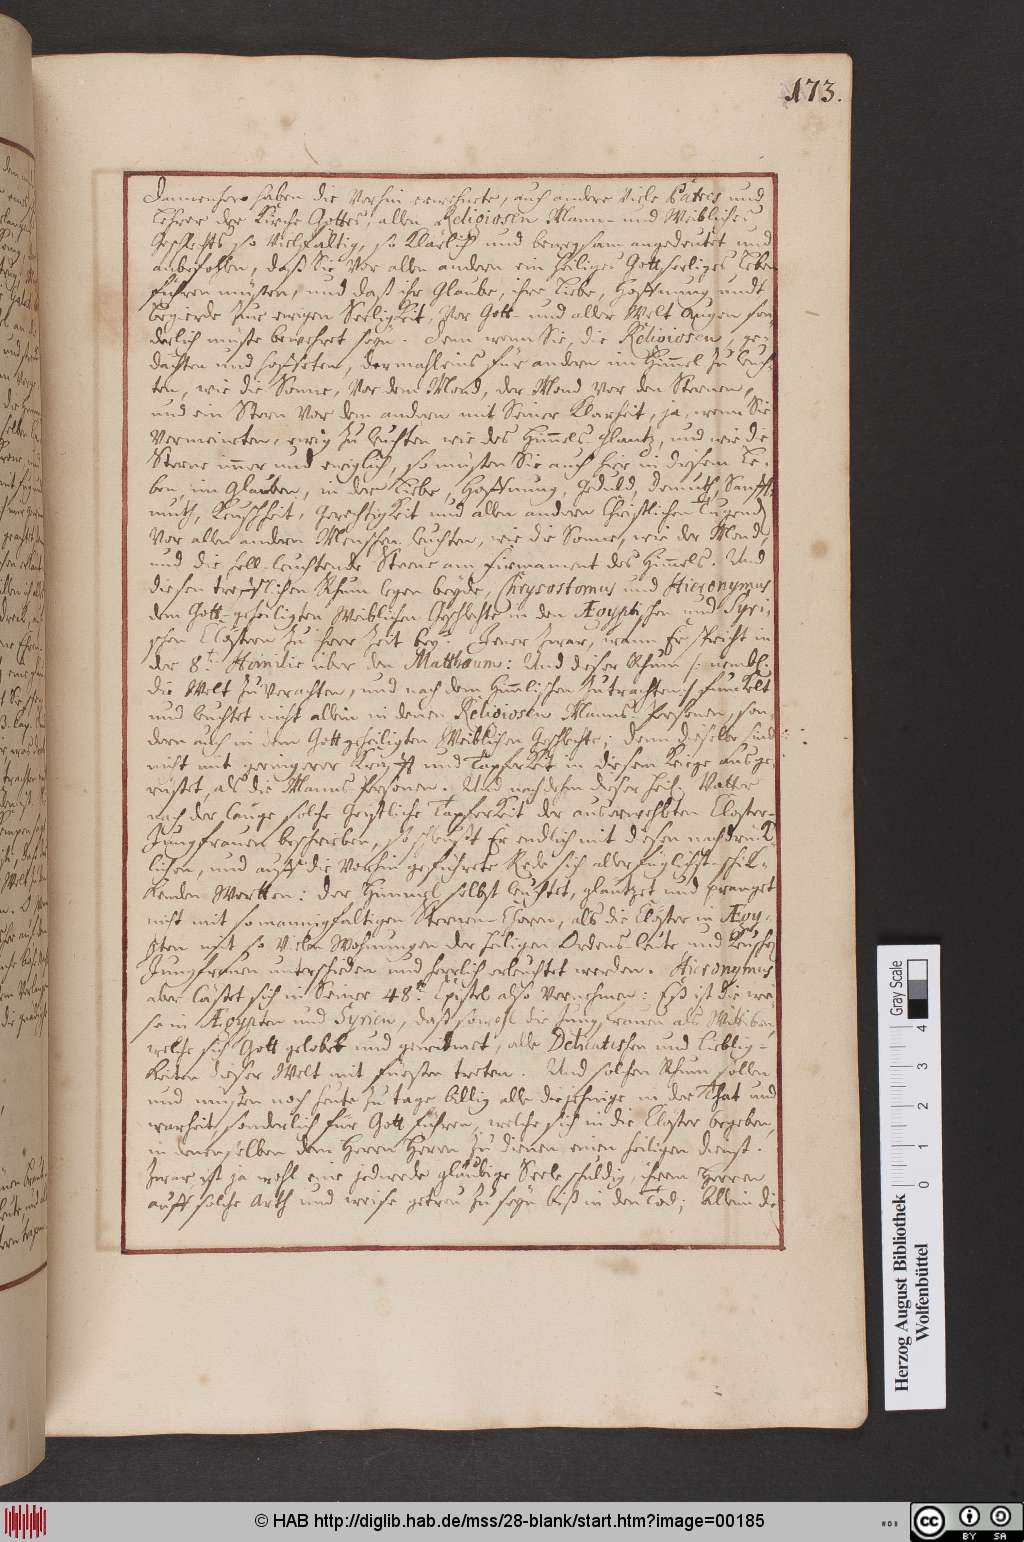 173.
Dannenhero haben die vorhin erwehnete, auch andere viele Patres und
Lehrer der Kirche Gottes, allen Religiosen Mann- und Weibliches
Geschlechts so vielfältig, so klärlich und bewegsam angedeutet und
anbefohlen, daß Sie vor allen andern ein heiliges Gottseeliges Leben
führen müsten, und daß ihr Glaube, ihre Liebe, Hoffnung undt
Begierde zur ewigen Seeligkeit, vor Gott und aller Welt Augen son-
derlich müste bewehret seyn. Denn wenn Sie, die Religiosen, ge-
dächten und hoffeten, dermahleins für andern im Himmel zu leuch-
ten, wie die Sonne, vor dem Mond, der Mond vor den Sternen,
und ein Stern vor dem andern mit Seiner Klarheit, ja, wenn Sie
vermeineten, ewig zu leuchten wie des Himmels glantz, und wie die
Sterne immer und ewiglich, so müsten Sie auch hier in diesem Le-
ben, im Glauben, in der Liebe, Hoffnung, Geduld, Demuth, Sanfft-
muth, Keuschheit, Gerechtigkeit und allen andern Christlichen Tugenden
vor allen andern Menschen leuchten, wie die Sonne, wie der Mond,
und die hell-leuchtende Sterne am Firmament des Himmels. Und
diesen trefflichen Rhum legen beyde, Chrysostomus und Hieronymus
dem Gott-geheiligten Weiblichen Geschlechte in den Ægyptischen und Syri-
schen Clöstern zu ihrer Zeit bey. Jener zwar, wann Er spricht in
der 8t. Homilie über den Matthæum: Und dieser Rhum /: nembl:
die Welt zu verachten, und nach dem Himmlischen zu trachten :/ funckelt
und leuchtet nicht allein in denen Religiosen Manns-Personen, son-
dern auch in dem Gottgeheiligten Weiblichen Geschlechte; denn dieselbe sind
nicht mit geringerer Krafft und Tapferkeit in diesem Kriege ausge-
rüstet, als die Manns Personen. Und nachdehm dieser heil. Vatter
nach der länge solche Geistliche Tapferkeit der auserwehlten Closter-
Jungfrauen beschrieben, so schleust Er endlich mit diesen nachdrück-
lichen, und auff die vorhin geführete Rede sich allerfüglichst schik-
kenden Wortten: Der Himmel selbst leuchtet, glantzet und pranget
nicht mit so mannigfaltigen Sternen-Chören, als die Clöster in Ægy-
pten mit so vielen Wohnungen der heiligen Ordensleute und keuschen
Jungfrauen unterschieden und herrlich erleuchtet werden. Hieronymus
aber lässet sich in Seiner 48t. Epistel also vernehmen: Eß ist die wei-
se in Ægypten und Syrien, daß sowohl die Jungfrauen als Wittiben,
welche sich Gott gelobet und gewidmet, alle Delicatischen und Lieblig-
keiten dieser Welt mit füessen treten. Und solchen Rhum sollen
und müsten noch heute zu tage billig alle diejenige in der That und
warheit sonderlich für Gott führen, welche sich in die Clöster begeben,
in denenselben dem Herrn Herrn zu dienen einen heiligen dienst.
Zwar ist ja wohl eine jedwede gläubige Seele schuldig, ihrem Herren
auff solche Arth und weise getreu zu seyn biß in den Tod; Allein die
Herzog August Bibliothek
Wolfenbüttel
Gray Scale
0 1 2 3 4
© HAB http://diglib.hab.de/mss/28-blank/start.htm?image=00185
WDB
cc BY SA